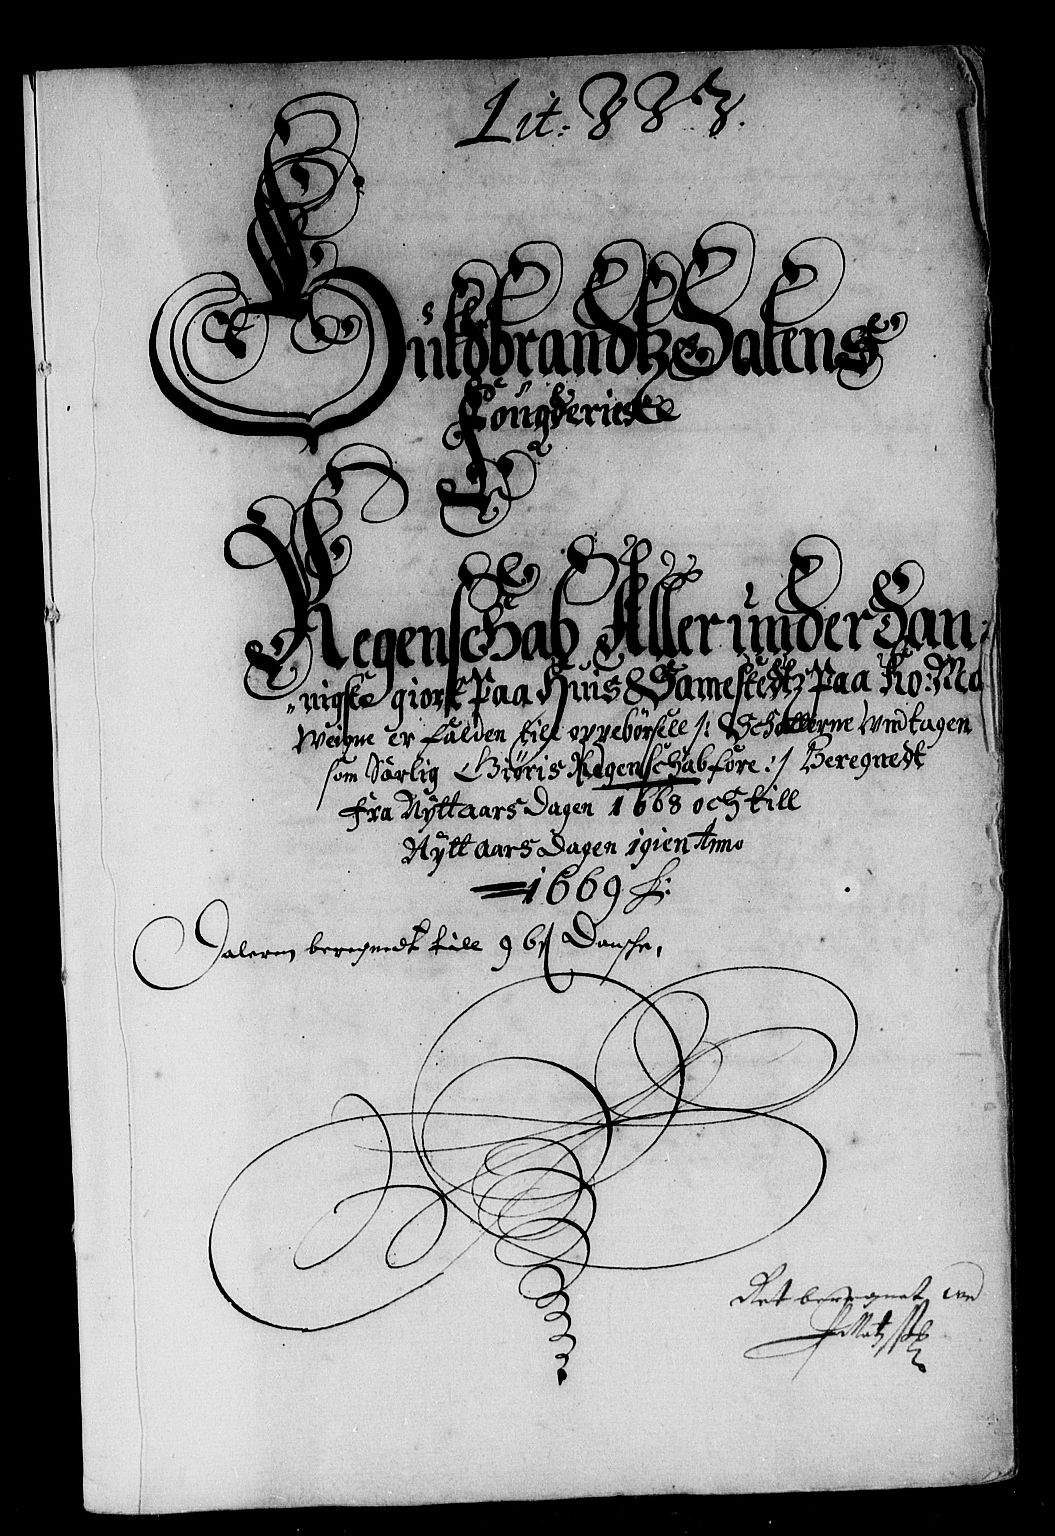 Lit:
Guldbrandtz Dalens
Fougderies
Regenschab Aller under Dan,
nigste giort paa Huis & Samestedtz paa Ko: Ma
Weigne er falden till oppebörsell /: Schatterne Undtagen
som Särlig Giöris Regenschab fore :/ Beregnedt
fra Nÿtt aars Dagen 1668 och till
Nÿtt aars Dagen igien Anno
1669
Daleren beregnedt till 96 Dansche,
Ret beregnet